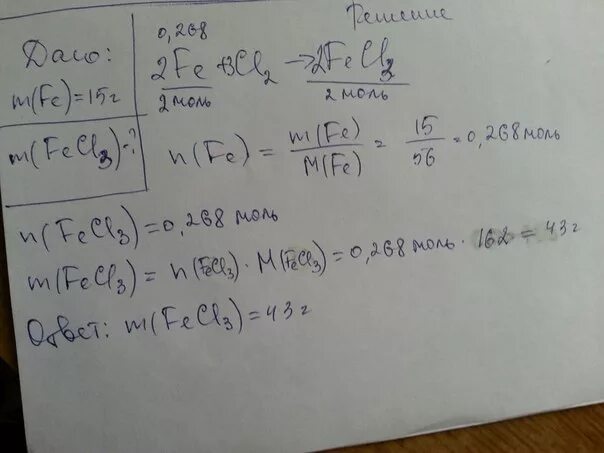 Решение
Дано:
m(Fe)=15г
m(FeCl3)-?
0,268
2Fe+3Cl2→2FeCl3
2моль 2моль
n(Fe) = m(Fe)/M(Fe) = 15/56 = 0,268моль
n(FeCl3)=0,268 моль
m(FeCl3) = n(FeCl3)·M(FeCl3)=0,268 моль·162=43г
Ответ: m(FeCl3)=43г